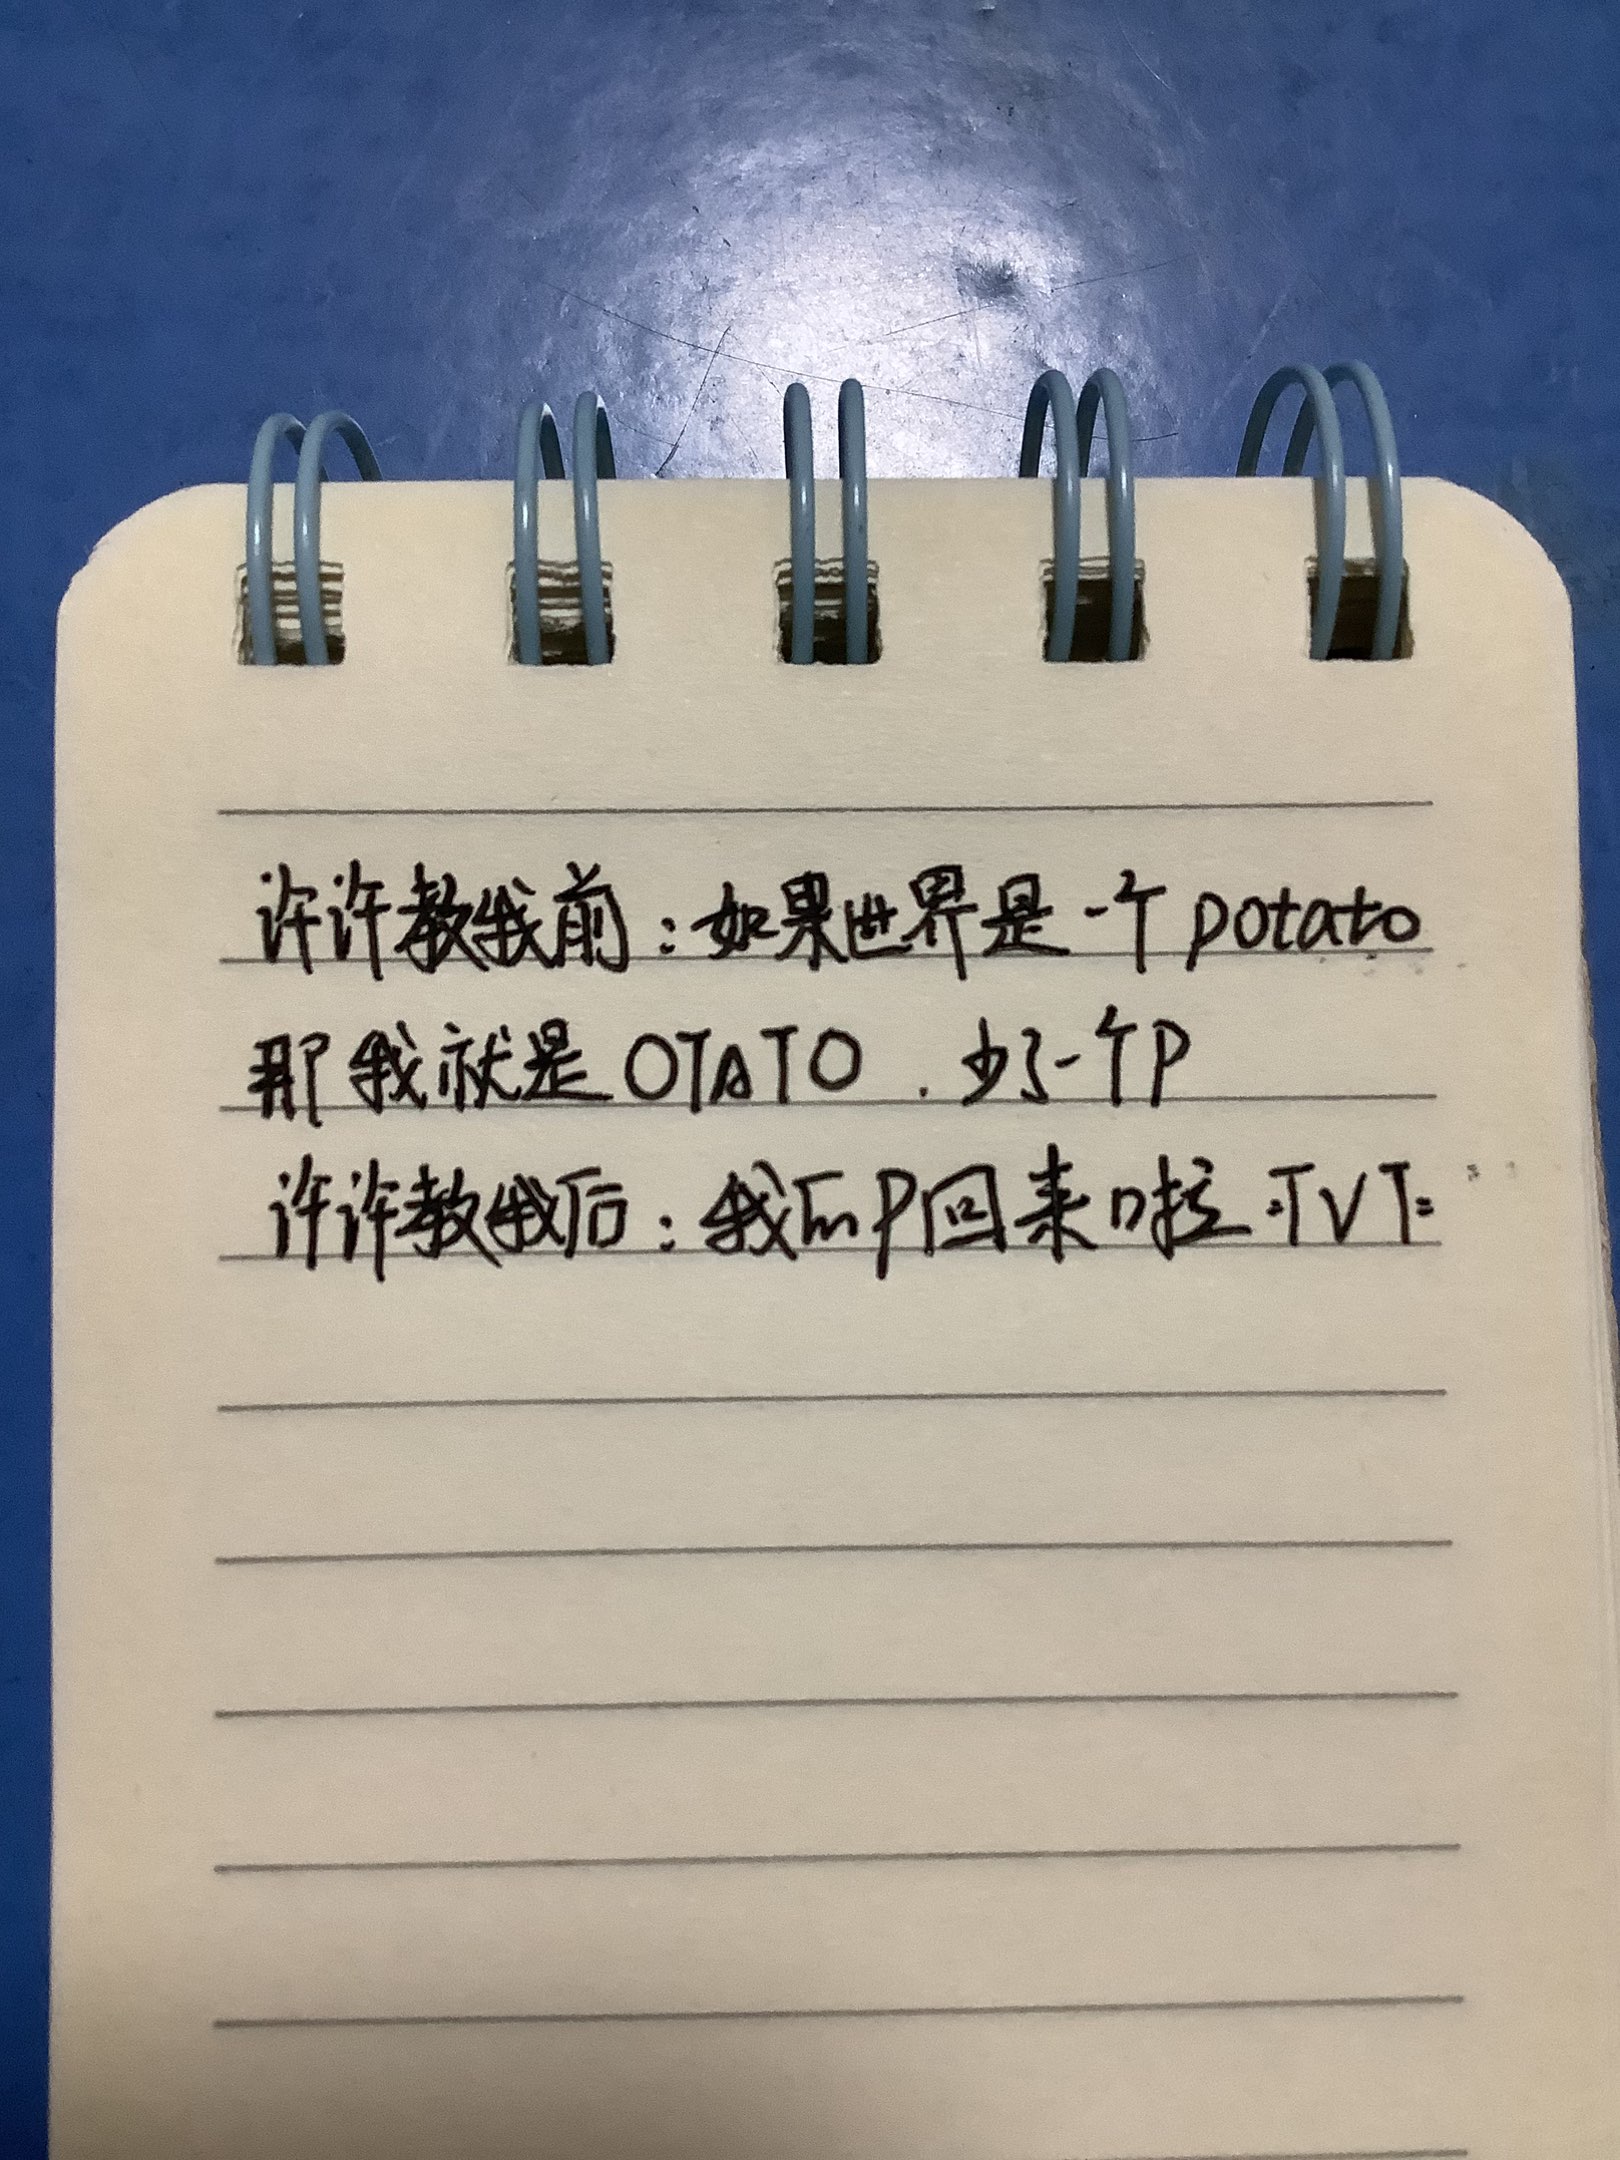 许许教我前:如果世界是一个potato
那我就是OTATO.少了一个P
许许教我后:我的P回来啦:TVT: